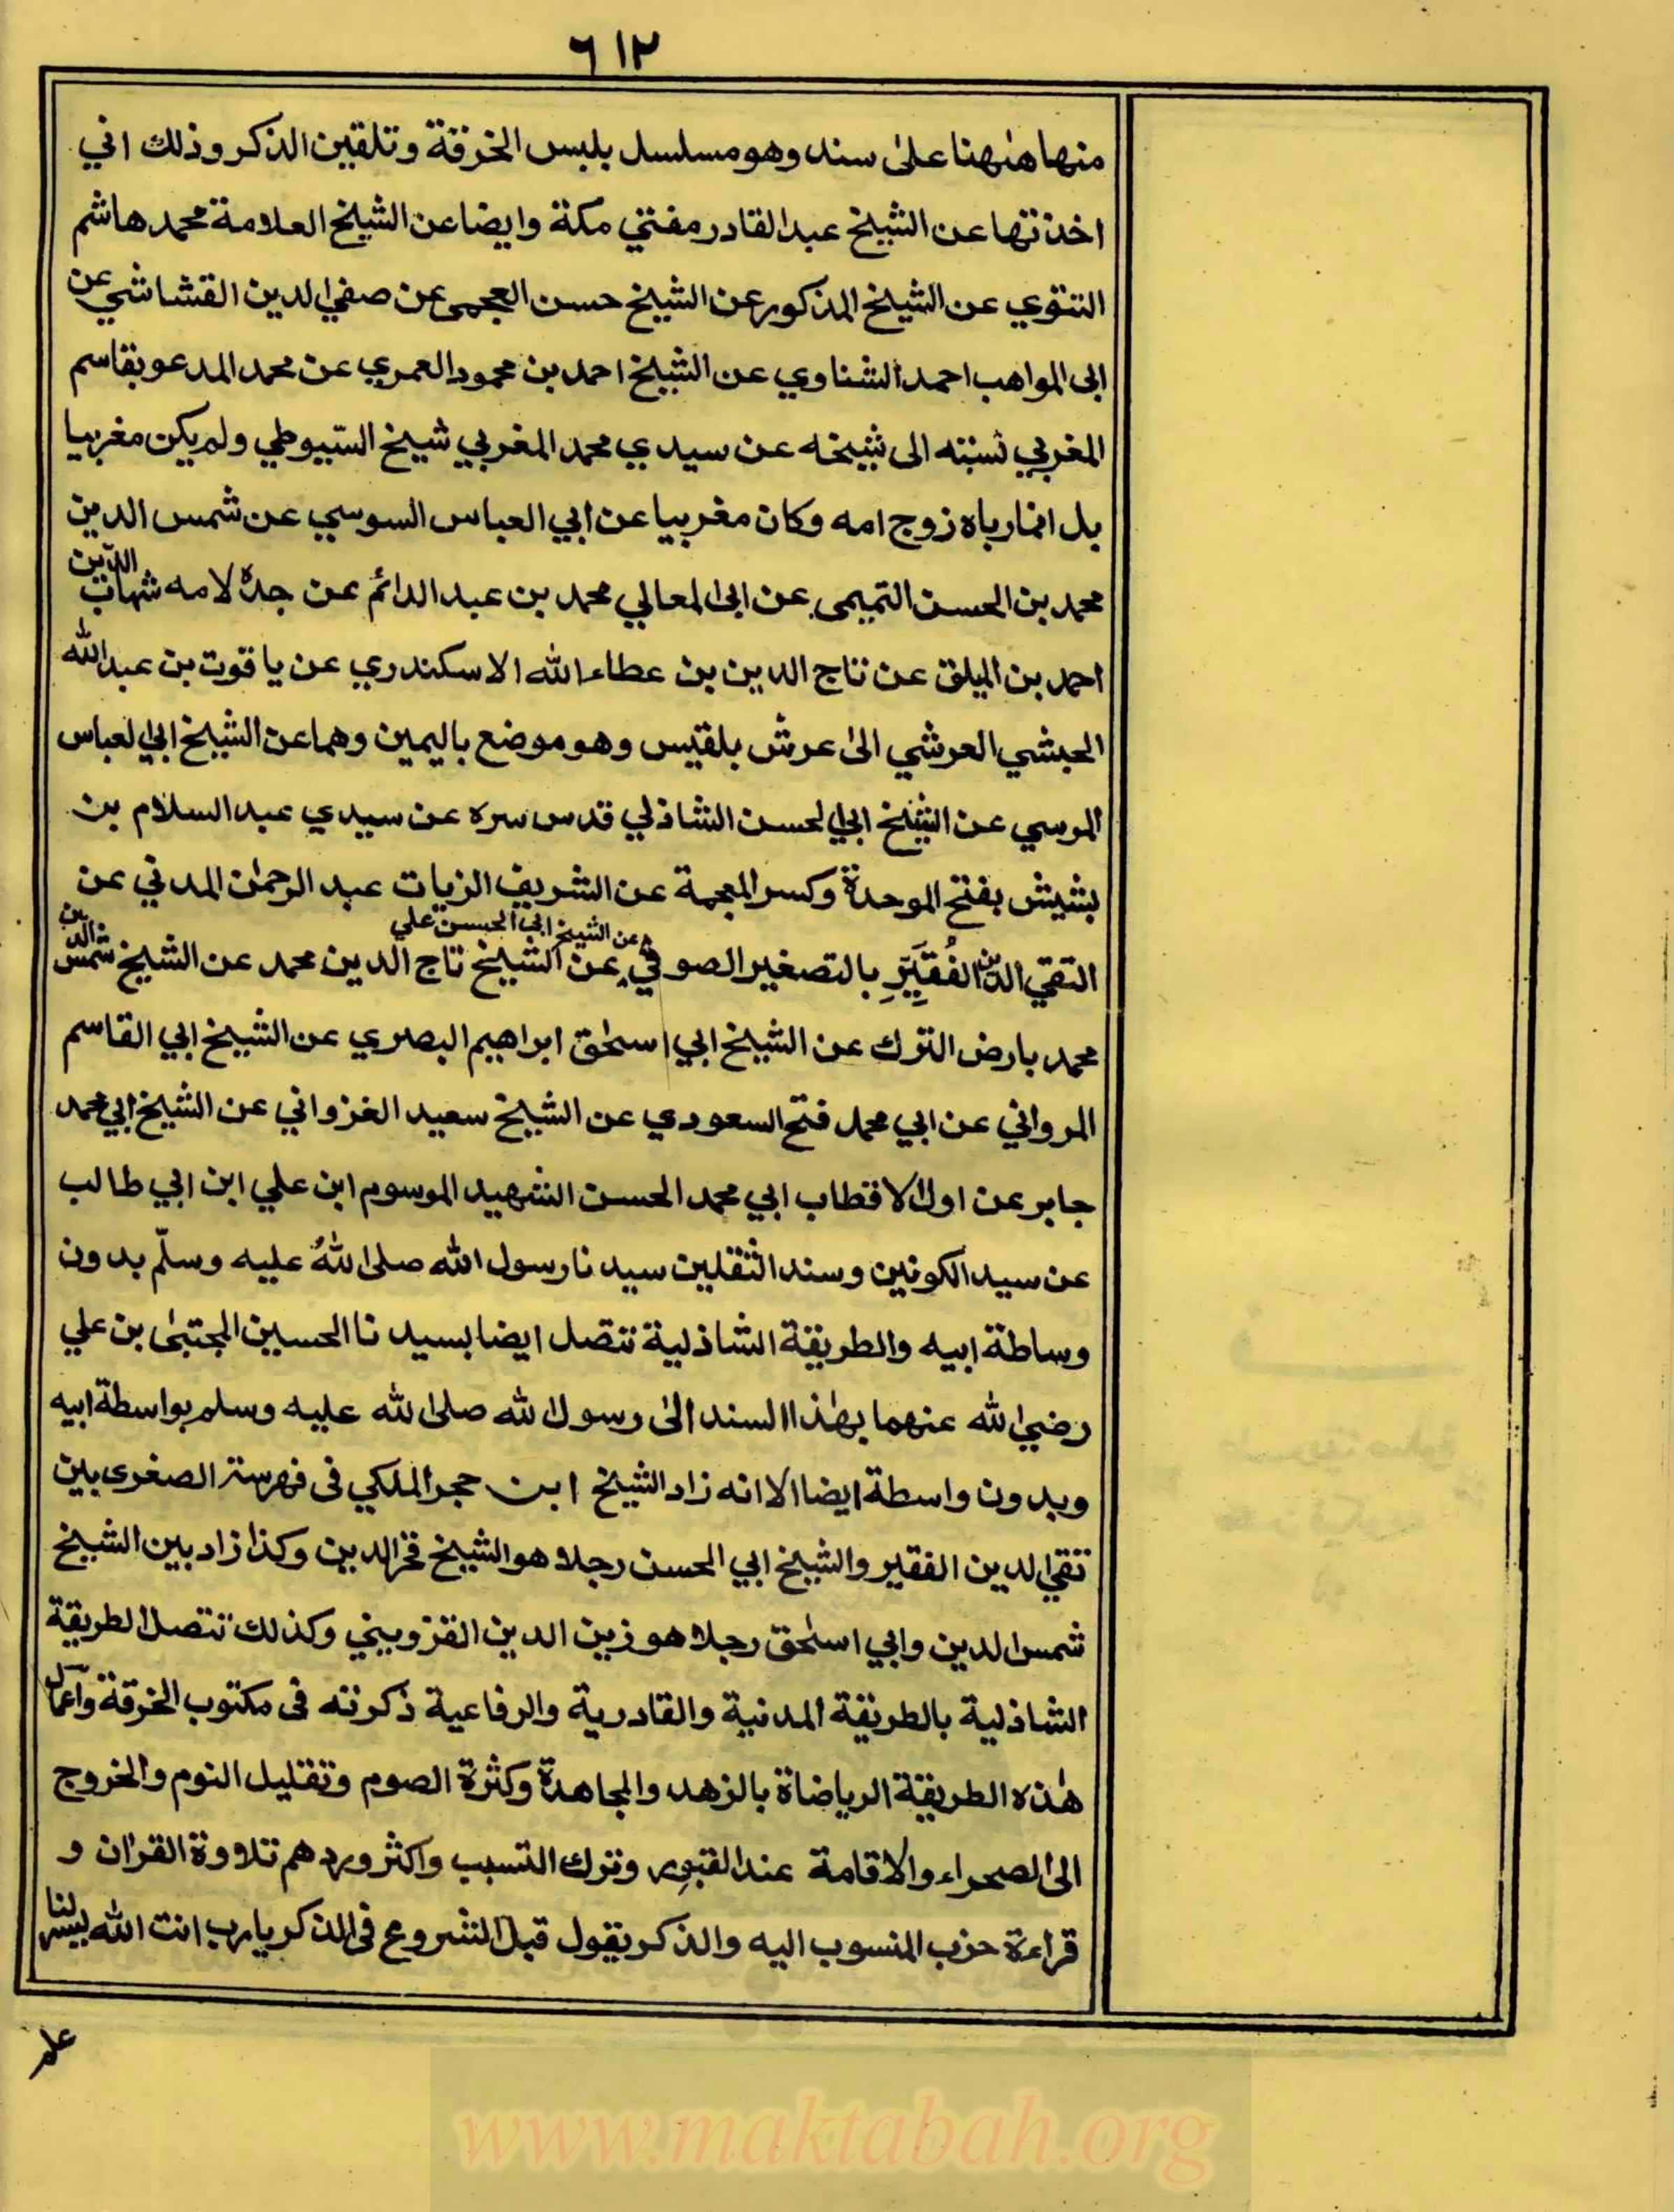 ٦١٢
منها هٰهنا علىٰ سند وهو مسلسل بلبس الخرقة وتلقين الذكر وذلك اني
اخذتها عن الشيخ عبد القادر مفتي مكة وايضا عن الشيخ العلامة محمد هاشم
التتوي عن الشيخ المذكور عن الشيخ حسن العجمى عن صفي الدين القشاشي عن
ابى المواهب احمد الشناوي عن الشيخ احمد بن محمود العمري عن محمد المدعو بقاسم
المغربي نسبته الى شيخه عن سيدي محمد المغربي شيخ السيوطي ولم يكن مغربيا
بل انما رباه زوج امه وكان مغربيا عن ابي العباس السوسي عن شمس الدين
محمد بن الحسن التميمى عن ابى المعالي محمد بن عبد الدائم عن جده لامه شهاب الدين
احمد بن الميلق عن تاج الدين بن عطاء الله الاسكندري عن ياقوت بن عبد الله
الحبشي العرشي الىٰ عرش بلقيس وهو موضع باليمين وهما عن الشيخ ابي العباس
المرسي عن الشيخ ابي الحسن الشاذلي قدس سره عن سيدي عبد السلام بن
بشيش بفتح الموحدة وكسر المعجمة عن الشريف الزيات عبد الرحمٰن المدني عن
التقي الدين الفُقَيِّرِ بالتصغير الصوفي عن الشيخ ابي الحسن علي عن الشيخ تاج الدين محمد عن الشيخ شمس الدين
محمد بارض الترك عن الشيخ ابي اسحٰق ابراهيم البصري عن الشيخ ابي القاسم
المرواني عن ابي محمد فتح السعودي عن الشيخ سعيد الغزواني عن الشيخ ابي محمد
جابر عن اول الاقطاب ابي محمد الحسن الشهيد الموسوم ابن علي ابن ابي طالب
عن سيد الكونين وسند الثقلين سيدنا رسول الله صلى اللهُ عليه وسلّم بدون
وساطة ابيه والطريقة الشاذلية تتصل ايضا بسيدنا الحسين المجتبىٰ بن علي
رضي الله عنهما بهٰذا السند الىٰ رسول الله صلى الله عليه وسلم بواسطة ابيه
وبدون واسطة ايضا الا انه زاد الشيخ ابن حجر الملكي فى فهرسته الصغرى بين
تقي الدين الفقير والشيخ ابي الحسن رجلا هو الشيخ فخر الدين وكذا زاد بين الشيخ
شمس الدين وابي اسحٰق رجلا هو زين الدين القزويني وكذلك تتصل الطريقة
الشاذلية بالطريقة المدنية والقادرية والرفاعية ذكرته فى مكتوب الخرقة واعمال
هٰذه الطريقة الرياضاة بالزهد والمجاهدة وكثرة الصوم وتقليل النوم والخروج
الى الصحراء والاقامة عند القبور وترك التسبب واكثر وردهم تلاوة القران و
قراءة حزب المنسوب اليه والذكر يقول قبل الشروع فى الذكر يا رب انت الله يسر لنا
علم
www.maktabah.org